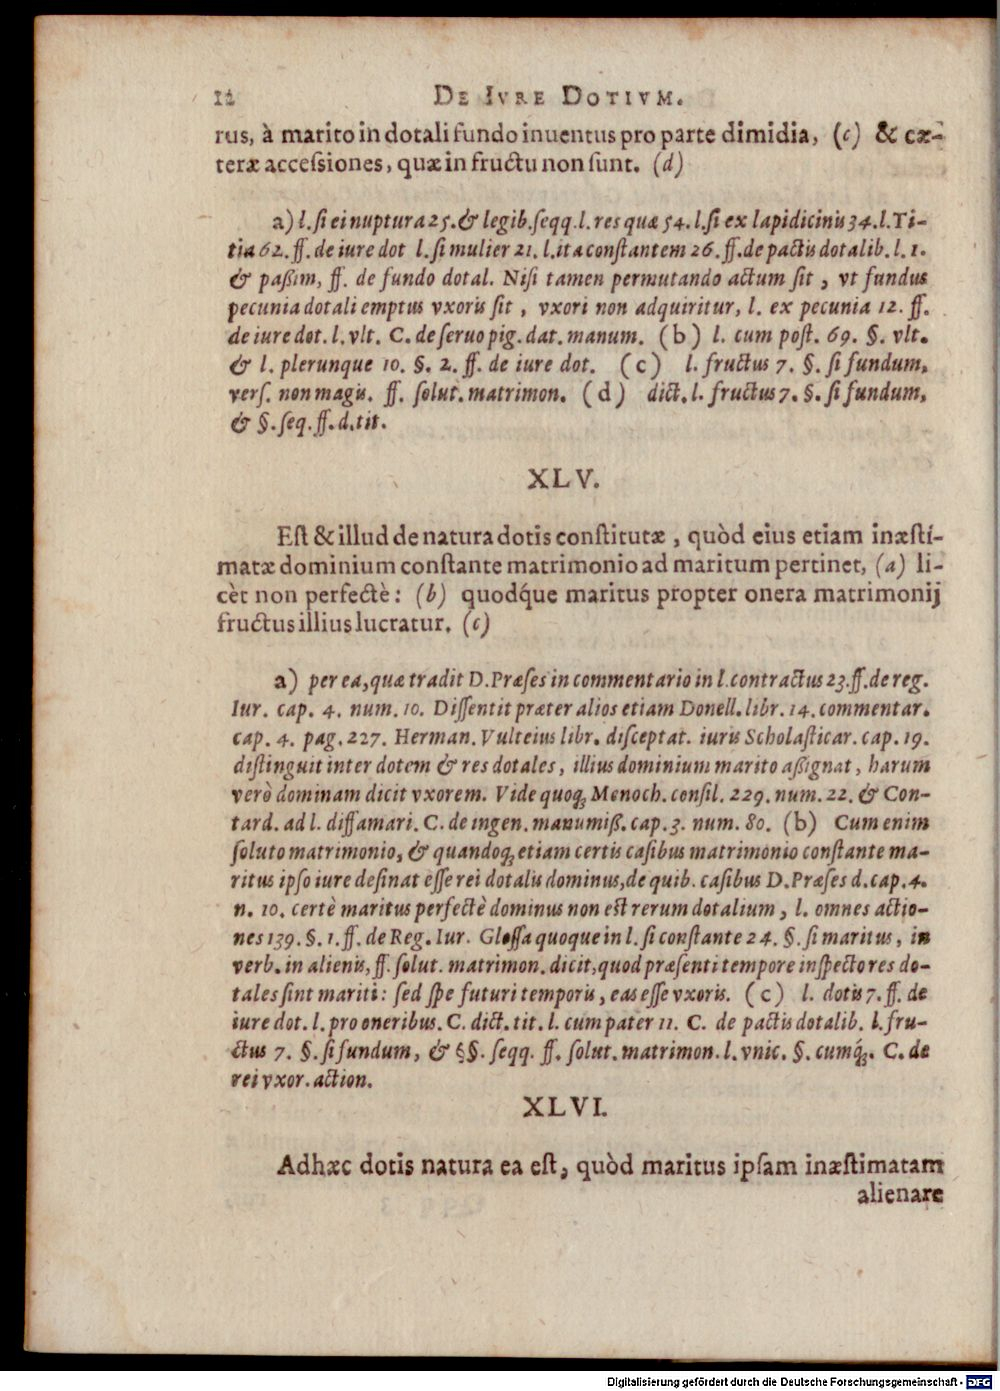 12 DE IVRE DOTIVM.
rus, à marito in dotali fundo inuentus pro parte dimidia, (c) & cæ-
teræ accessiones, quæ in fructu non sunt. (d)
a) l. si ei nuptura 25. & legib. seqq. l. res quæ 54. l. si ex lapidicinis 34. l. Ti-
tia 62. ff. de iure dot l. si mulier 21. l. ita constantem 26. ff. de pactis dotalib. l. 1.
& paßim, ff. de fundo dotal. Nisi tamen permutando actum sit, vt fundus
pecunia dotali emptus vxoris sit, vxori non adquiritur, l. ex pecunia 12. ff.
de iure dot. l. vlt. C. de seruo pig. dat. manum. (b) l. cum post. 69. §. vlt.
& l. plerunque 10. §. 2. ff. de iure dot. (c) l. fructus 7. §. si fundum,
vers. non magis. ff. solut. matrimon. (d) dict. l. fructus 7. §. si fundum,
& §. seq. ff. d. tit.
XLV.
Est & illud de natura dotis constitutæ, quòd eius etiam inæsti-
matæ dominium constante matrimonio ad maritum pertinet, (a) li-
cèt non perfectè: (b) quodq́ue maritus propter onera matrimonij
fructus illius lucratur. (c)
a) per ea, quæ tradit D. Præses in commentario in l. contractus 23. ff. de reg.
Iur. cap. 4. num. 10. Dissentit præter alios etiam Donell. libr. 14. commentar.
cap. 4. pag. 227. Herman. Vulteius libr. disceptat. iuris Scholasticar. cap. 19.
distinguit inter dotem & res dotales, illius dominium marito aßignat, harum
verò dominam dicit vxorem. Vide quoq; Menoch. consil. 229. num. 22. & Con-
tard. ad l. diffamari. C. de ingen. manumiß. cap. 3. num. 80. (b) Cum enim
soluto matrimonio, & quandoq; etiam certis casibus matrimonio constante ma-
ritus ipso iure desinat esse rei dotalis dominus, de quib. casibus D. Præses d. cap. 4.
n. 10. certè maritus perfectè dominus non est rerum dotalium, l. omnes actio-
nes 139. §. 1. ff. de Reg. Iur. Glossa quoque in l. si constante 24. §. si maritus, in
verb. in alienis, ff. solut. matrimon. dicit, quod præsenti tempore inspecto res do-
tales sint mariti: sed spe futuri temporis, eas esse vxoris. (c) l. dotis 7. ff. de
iure dot. l. pro oneribus. C. dict. tit. l. cum pater 11. C. de pactis dotalib. l. fru-
ctus 7. §. si fundum, & §§. seqq. ff. solut. matrimon. l. vnic. §. cumq́;. C. de
rei vxor. action.
XLVI.
Adhæc dotis natura ea est, quòd maritus ipsam inæstimatam
alienare
Digitalisierung gefördert durch die Deutsche Forschungsgemeinschaft - DFG